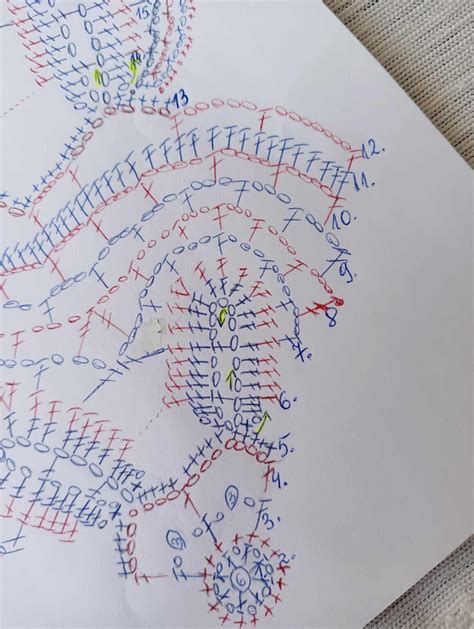 15.
13
12.
11.
10.
9.
8
7.
6.
5.
4.
3.
3
3
2.
6